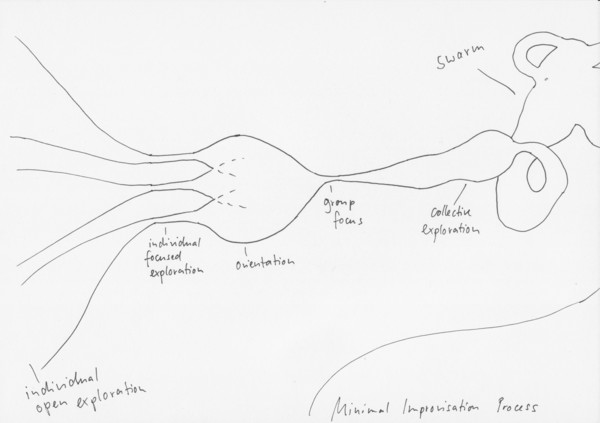 Swarm
group
focus
collective
exploration
individual
focused
exploration
orientation
individual
open exploration
Minimal Improvisation Process